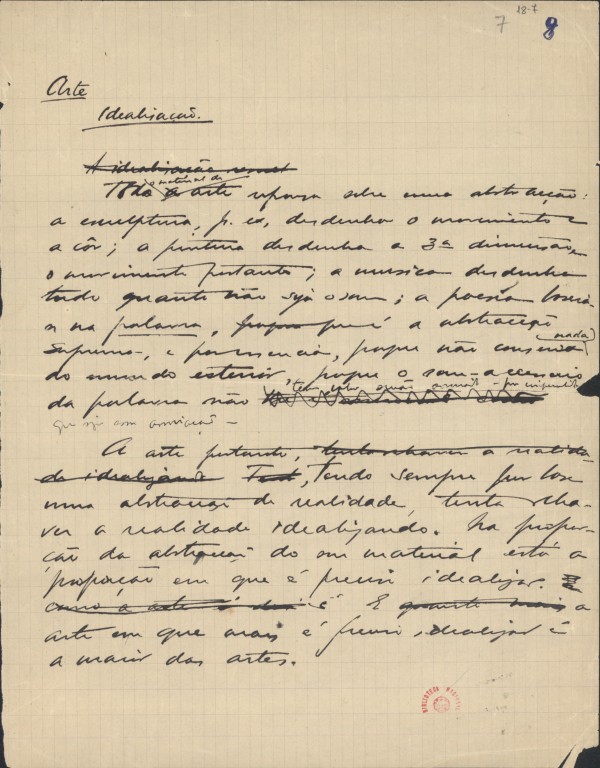 18-7
7 8
Arte
Idealisação.
A idealisação
o material da
Toda a arte repousa sobre uma abstracção:
a esculptura, p. ex, desdenha o movimento e
a côr; a pintura desdenha a 3ª dimensão e
o movimento portanto; a musica desdenha
tudo quanto não seja o som; a poesia baseia-
se na palavra, que é a abstracção
suprema, e por essencia, porque não conserva nada
do mundo exterior, porque o som - accessorio
da palavra não tem valor senão associado - por
que seja com
A arte portanto,
Tendo sempre por base
uma abstracção da realidade, tenta rehaver
a realidade idealizando. Na propor-
ção da abstracção do seu material está a
proporção em que é preciso idealizar.
como a arte E quanto mais a
arte em que mais é preciso idealizar é
a maior das artes.